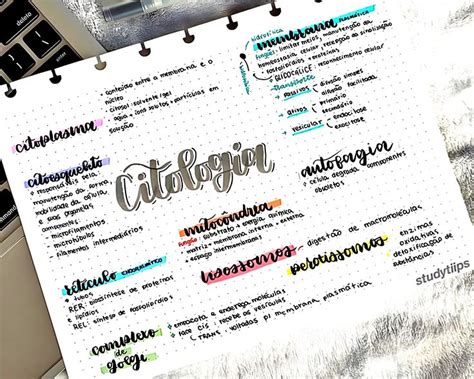 delete
hidrofílica
membrana plasmática
função: limitar meios, manutenção da
homeostasia celular, recepção da sinalização
fosfolipídios + proteínas
GLIDOCÁLICE: reconhecimento celular
transporte
passivos difusão simples
difusão facilitada
ativos primário
secundário
vesicular endocitose
exocitose
conteúdo entre a membrana e o
núcleo
citosol: solvente/gel
água + íons sólitos + partículas em
solução
citoplasma
citoesqueleto
responsável pela
manutenção da forma,
mobilidade da célula,
e suas organelas
componentes:
microfilamentos
microtúbulos
filamentos intermediários
Citologia
autofagia
célula degrada componentes
obsoletos
mitocôndria
função: substrato → energia química
matriz + espaço interno + externo
membrana interna + externa
lisossomos
digestão de macromoléculas
peroxissomos
enzimas
oxidativas
detoxificação de
substâncias
retículo endoplasmático
tubos
RER: biossíntese de proteínas
e lipídios
REL: síntese de fosfolipídio
complexo
de golgi
empacota e endereça moléculas
face CIS: recebe as vesículas
TRANS: voltadas p/ membrana plasmática
studytiips